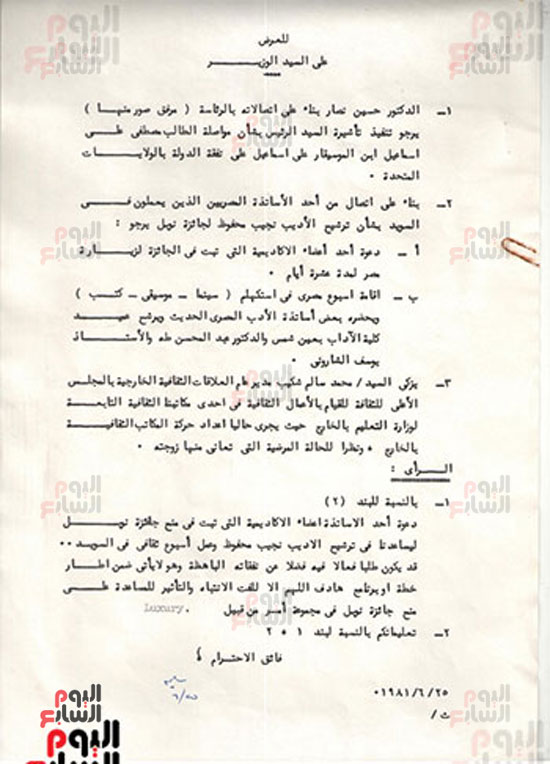 للعرض
على السيد الوزيـــــر
١ــ الدكتور حسين نصار بناء على اتصالاته بالرئاسة ( مرفق صور منها )
يرجو تنفيذ تأشيرة السيد الرئيس بشأن مواصلة الطالب مصطفى علـــى
اسماعيل ابن الموسيقار على اسماعيل على نفقة الدولة بالولايـــــات
المتحدة ٠
٢ــ بناء على اتصال من أحد الأساتذة المصريين الذين يعملون فـــى
السويد بشأن ترشيح الأديب نجيب محفوظ لجائزة نوبل يرجو :
أ ــ دعوة أحد أعضاء الاكاديمية التى تبت فى الجائزة لزيـــارة
مصر لمدة عشرة أيام ٠
ب ــ اقامة اسبوع مصرى فى استكهلم ( سينما ــ موسيقى ــ كتـــب )
ويحضره بعض أساتذة الأدب المصرى الحديث ويرشح عميـــد
كلية الآداب بعين شمس والدكتور عبد المحسن طه والأستـــاذ
يوسف الشارونى ٠
٣ــ يزكى السيد / محمد سالم شكيب مدير عام العلاقات الثقافية الخارجية بالمجلس
الأعلى للثقافة للقيام بالأعمال الثقافية فى احدى مكاتبنا الثقافية التابعـــة
لوزارة التعليم بالخارج حيث يجرى حاليا اعداد حركة المكاتب الثقافيـــة
بالخارج ٠ ونظرا للحالة المرضية التى تعانى منها زوجته ٠
الـــرأى :
١ــ بالنسبة للبند (٢)
دعوة أحد الاساتذة اعضاء الاكاديمية التى تبت فى منح جائزة نوبـــل
ليساعدنا فى ترشيح الاديب نجيب محفوظ وعمل أسبوع ثقافى فى السويد ٠٠
قد يكون طلبا فعالا فيه فضلا عن نفقاته الباهظة وهو لايأتى ضمن اطـــار
خطة او برنامج هادف اللهم الا للفت الانتباه والتأثير للمساعدة علـــى
منح جائزة نوبل فى مجموعة أسر من قبيل Luxury.
٢ــ تعليماتكم بالنسبة لبند ١ ، ٢
فائق الاحترام ،
٦/٢٥
٠١٩٨١/٦/٢٥
ث /
اليوم السابع
اليوم السابع
اليوم السابع
اليوم السابع
اليوم السابع
اليوم السابع
اليوم السابع
اليوم السابع